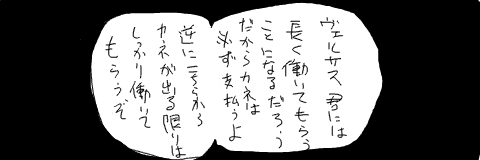 ヴェルサス君には
長く働いてもらう
ことになるだろう
だからカネは
必ず支払うよ
逆に言うから
カネが出る限りは
しっかり働いて
もらうぞ